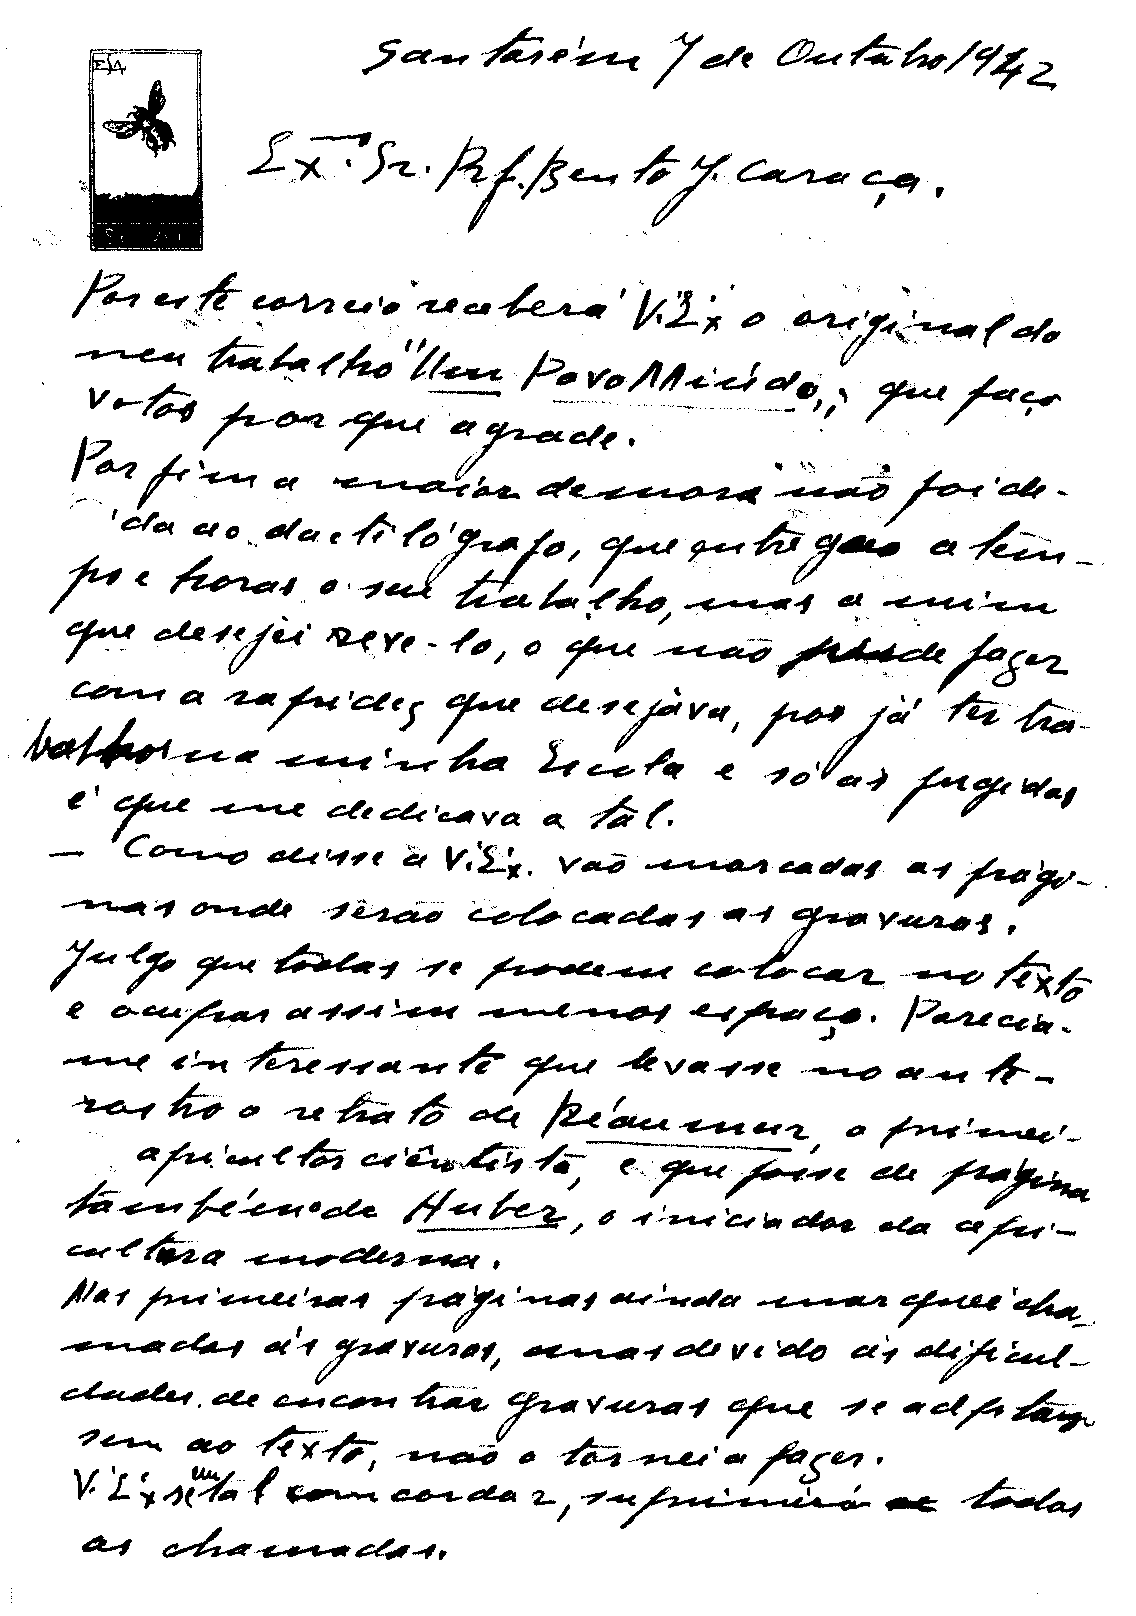 Santarém 7 de Outubro 1942
ESA
Exmo. Sr. Prof. Bento J. Caraça.
Por este correio receberá V. Ex. o original do
meu trabalho "Um Povo Miúdo", que faço
votos por que agrade.
Por fim a maior demora não foi de-
ida ao dactilógrafo, que entregou a tem-
po e horas o seu trabalho, mas a mim
que desejei reve-lo, o que não pude fazer
com a rapidez que desejava, por já ter tra-
balhos na minha Escola e só as fugidas
é que me dedicava a tal.
— Como disse a V. Ex. vão marcadas as pági-
nas onde serão colocadas as gravuras.
Julgo que todas se podem colocar no texto
e ocupar assim menos espaço. Parecia-
me interessante que levasse no ante-
rostro o retrato de Réaumur, o primei-
apicultor ciêntista, e que fosse de página
também o de Huber, o iniciador da api-
cultura moderna.
Nas primeiras páginas ainda marquei cha-
madas ás gravuras, mas devido ás dificul-
dades de encontrar gravuras que se adptas-
sem ao texto, não o tornei a fazer.
V. Ex. se um tal concordar, suprimirá todas
as chamadas.